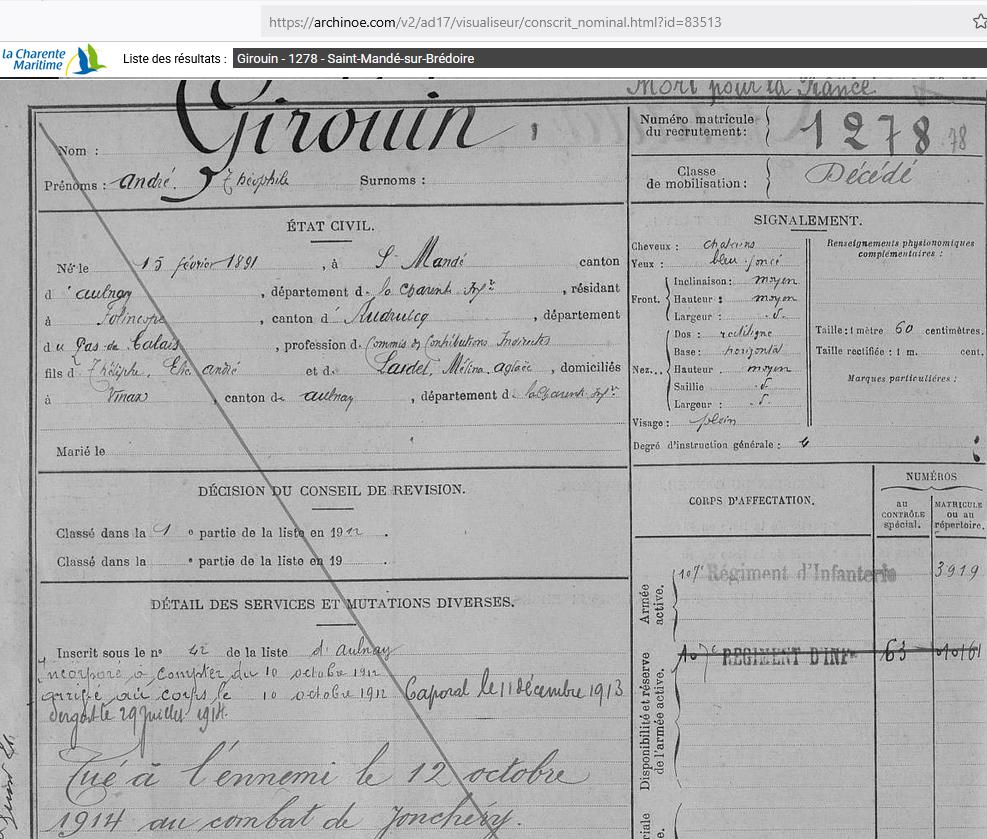 https://archinoe.com/v2/ad17/visualiseur/conscrit_nominal.html?id=83513
la Charente
Maritime
Liste des résultats :
Girouin - 1278 - Saint-Mandé-sur-Brédoire
Mort pour la France
Nom : Girouin
Prénoms : André Théophile Surnoms :
Numéro matricule
du recrutement : 1278 78
Classe
de mobilisation : Décédé
ÉTAT CIVIL.
Né le 15 février 1891, à St Mandé canton
d'aulnay, département de la Charente Infre, résidant
à, canton d'Audruicq, département
du Pas-de Calais, profession de Commis des Contributions Indirectes
fils d André et de Lardet, Mélina aglaée, domiciliés
à Vinax, canton de aulnay, département de la Charente Infre
Marié le
SIGNALEMENT.
Cheveux : chatains
Yeux : bleu foncé
Front.
Inclinaison : moyen
Hauteur : moyen
Largeur : d.
Nez...
Dos : rectiligne
Base : horizontal
Hauteur : moyen
Saillie d.
Largeur : d.
Visage : plein
Degré d'instruction générale :
Renseignements physionomiques
complémentaires :
Taille : 1 mètre 60 centimètres.
Taille rectifiée : 1 m. cent.
Marques particulières :
DÉCISION DU CONSEIL DE REVISION.
Classé dans la 1 e partie de la liste en 1912.
Classé dans la e partie de la liste en 19 .
DÉTAIL DES SERVICES ET MUTATIONS DIVERSES.
Inscrit sous le n° 42 de la liste d'Aulnay
Incorporé à compter du 10 octobre 1912
arrivé au corps le 10 octobre 1912 Caporal le 11 décembre 1913
Sergent le 29 juillet 1914.
Tué à l'ennemi le 12 octobre
1914 au combat de Jonchéry.
CORPS D'AFFECTATION.
NUMÉROS
au
CONTRÔLE
spécial.
MATRICULE
ou au
répertoire.
Armée
active.
107e Régiment d'Infanterie 3919
Disponibilité et réserve
de l'armée active.
107e REGIMENT D'INFie 63